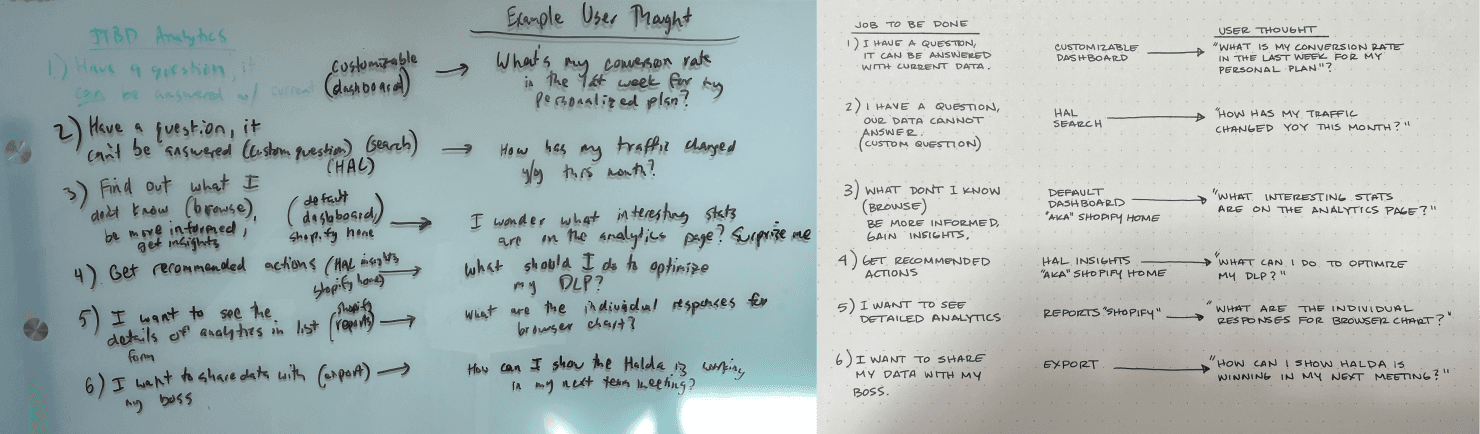 JTBD Analytics
Example User Thought
1) Have a question, it
can be answered w/ current
(customizable
dashboard)
What's my conversion rate
in the 1st week for my
personalized plan?
2) Have a question, it
can't be answered (custom question) (search)
(HAL)
How has my traffic changed
y/y this month?
3) Find out what I
don't know (browse),
be more informed,
get insights
(default
dashboard,
shopify home
I wonder what interesting stats
are on the analytics page? Surprize me
4) Get recommended actions (HAL insights
shopify home)
What should I do to optimize
my DLP?
5) I want to see the
details of analytics in list
form
(shopify
reports)
What are the individual responses for
browser chart?
6) I want to share data with (export)
my boss
How can I show the Halda is working
in my next team meeting?
JOB TO BE DONE
USER THOUGHT
1) I HAVE A QUESTION,
IT CAN BE ANSWERED
WITH CURRENT DATA.
CUSTOMIZABLE
DASHBOARD
"WHAT IS MY CONVERSION RATE
IN THE LAST WEEK FOR MY
PERSONAL PLAN"?
2) I HAVE A QUESTION,
OUR DATA CANNOT
ANSWER.
(CUSTOM QUESTION)
HAL
SEARCH
"HOW HAS MY TRAFFIC
CHANGED YOY THIS MONTH?"
3) WHAT DONT I KNOW
(BROWSE)
BE MORE INFORMED,
GAIN INSIGHTS.
DEFAULT
DASHBOARD
"AKA" SHOPIFY HOME
"WHAT INTERESTING STATS
ARE ON THE ANALYTICS PAGE?"
4) GET RECOMMENDED
ACTIONS
HAL INSIGHTS
"AKA" SHOPIFY HOME
"WHAT CAN I DO TO OPTIMIZE
MY DLP?"
5) I WANT TO SEE
DETAILED ANALYTICS
REPORTS "SHOPIFY"
"WHAT ARE THE INDIVIDUAL
RESPONSES FOR BROWSER CHART?"
6) I WANT TO SHARE
MY DATA WITH MY
BOSS.
EXPORT
"HOW CAN I SHOW HALDA IS
WINNING IN MY NEXT MEETING?"